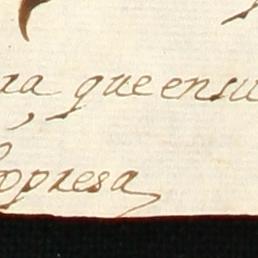 ra que ensu
opresa